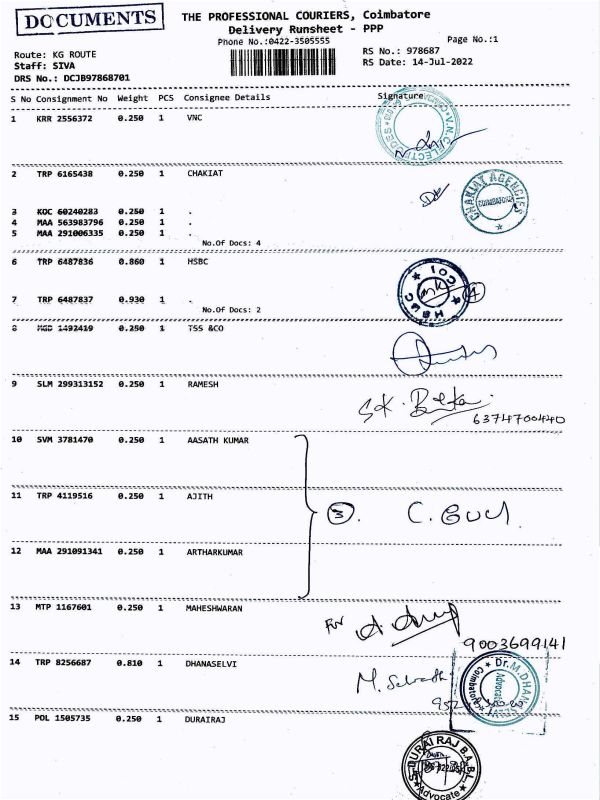 DOCUMENTS
THE PROFESSIONAL COURIERS, Coimbatore
Delivery Runsheet - PPP
Phone No.:0422-3505555
Page No.:1
Route: KG ROUTE
RS No.: 978687
Staff: SIVA
RS Date: 14-Jul-2022
DRS No.: DCJB97868701
S No Consignment No Weight PCS Consignee Details Signature
1 KRR 2556372 0.250 1 VNC
2 TRP 6165438 0.250 1 CHAKIAT
CHAKIAT AGENCIES
COIMBATORE
3 KOC 60240283 0.250 1 .
4 MAA 563983796 0.250 1 .
5 MAA 291006335 0.250 1 .
No.Of Docs: 4
6 TRP 6487836 0.860 1 HSBC
7 TRP 6487837 0.930 1 .
No.Of Docs: 2
8 MGD 1492419 0.250 1 TSS &CO
9 SLM 299313152 0.250 1 RAMESH
6374700440
10 SVM 3781470 0.250 1 AASATH KUMAR
11 TRP 4119516 0.250 1 AJITH
3
12 MAA 291091341 0.250 1 ARTHARKUMAR
13 MTP 1167601 0.250 1 MAHESHWARAN
9003699141
14 TRP 8256687 0.810 1 DHANASELVI
Advocate
Coimbatore
15 POL 1505735 0.250 1 DURAIRAJ
S.DURAI RAJ B.A.BL.
Advocate